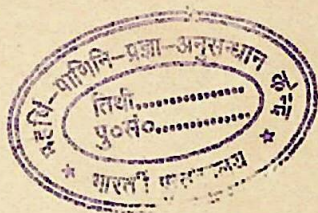 महर्षि-पाणिनि-प्रज्ञा-अनुसन्धान केन्द्र
तिथी.............
पु०सं०.............